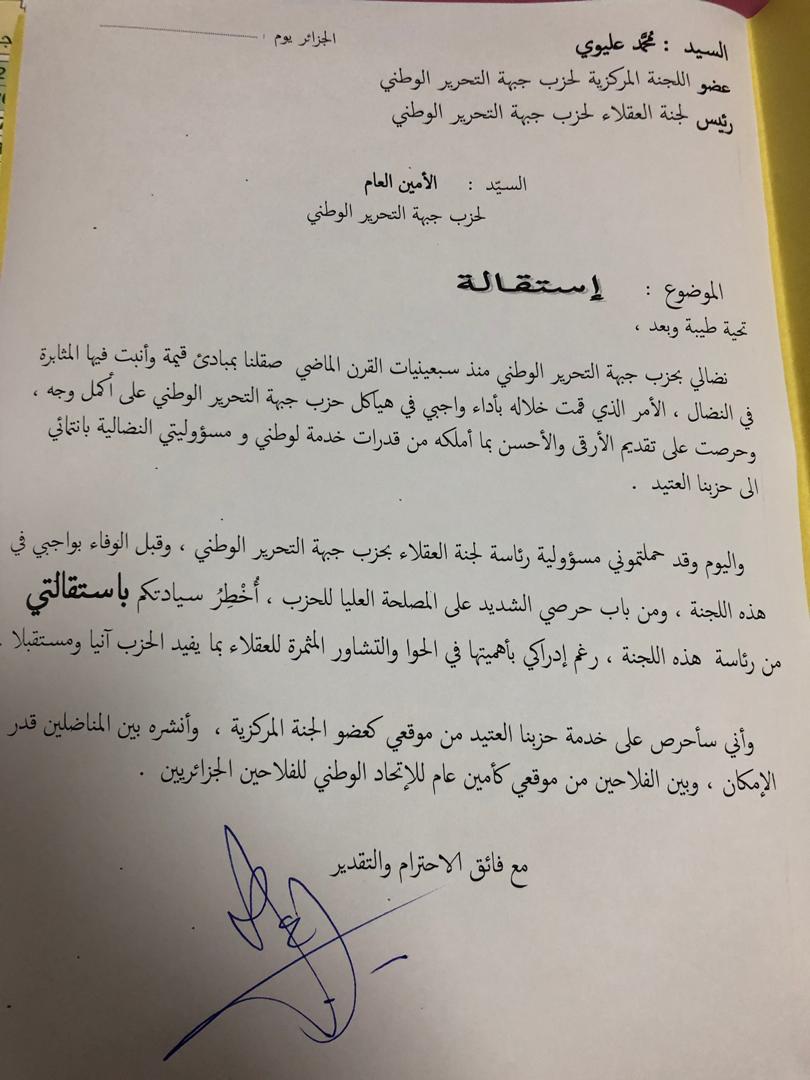 السيد : محمّد عليوي
الجزائر يوم : ........................
عضو اللجنة المركزية لحزب جبهة التحرير الوطني
رئيس لجنة العقلاء لحزب جبهة التحرير الوطني
السيّد : الأمين العام
لحزب جبهة التحرير الوطني
الموضوع : إستقالة
تحية طيبة وبعد ،
نضالي بحزب جبهة التحرير الوطني منذ سبعينيات القرن الماضي صقلنا بمبادئ قيمة وأنبت فيها المثابرة
في النضال ، الأمر الذي قمت خلاله بأداء واجبي في هياكل حزب جبهة التحرير الوطني على أكمل وجه ،
وحرصت على تقديم الأرقى والأحسن بما أملكه من قدرات خدمة لوطني و مسؤوليتي النضالية بانتمائي
الى حزبنا العتيد .
واليوم وقد حملتموني مسؤولية رئاسة لجنة العقلاء بحزب جبهة التحرير الوطني ، وقبل الوفاء بواجبي في
هذه اللجنة ، ومن باب حرصي الشديد على المصلحة العليا للحزب ، أُخْطِرُ سيادتكم باستقالتي
من رئاسة هذه اللجنة ، رغم إدراكي بأهميتها في الحوا والتشاور المثمرة للعقلاء بما يفيد الحزب آنيا ومستقبلا .
وأني سأحرص على خدمة حزبنا العتيد من موقعي كعضو الجنة المركزية ، وأنشره بين المناضلين قدر
الإمكان ، وبين الفلاحين من موقعي كأمين عام للإتحاد الوطني للفلاحين الجزائريين .
مع فائق الاحترام والتقدير